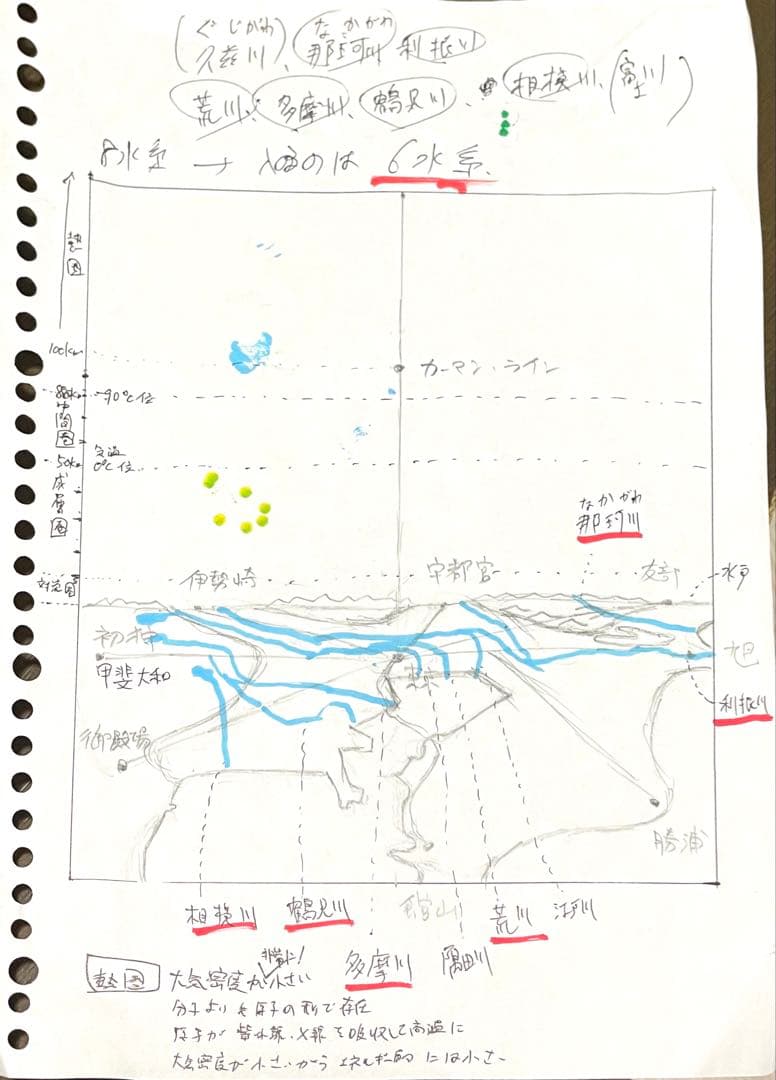 (久慈川)、那珂川 利根川
ぐじがわ なかがわ
荒川、多摩川、鶴見川、相模川、(富士川)
8水系 → 入るのは 6水系
熱圏
100km
カーマン・ライン
80km
-90℃位
中間圏
気温
0℃位
50km
成層圏
なかがわ
那珂川
対流圏
伊勢崎
宇都宮
友部
水戸
初狩
旭
甲斐大和
利根川
御殿場
勝浦
相模川
鶴見川
館山
荒川
江戸川
多摩川
隅田川
熱圏
非常に!
大気密度が小さい
分子よりも原子の形で存在
原子が紫外線、X線を吸収して高温に
大気密度が小さいから エネルギー的には小さい